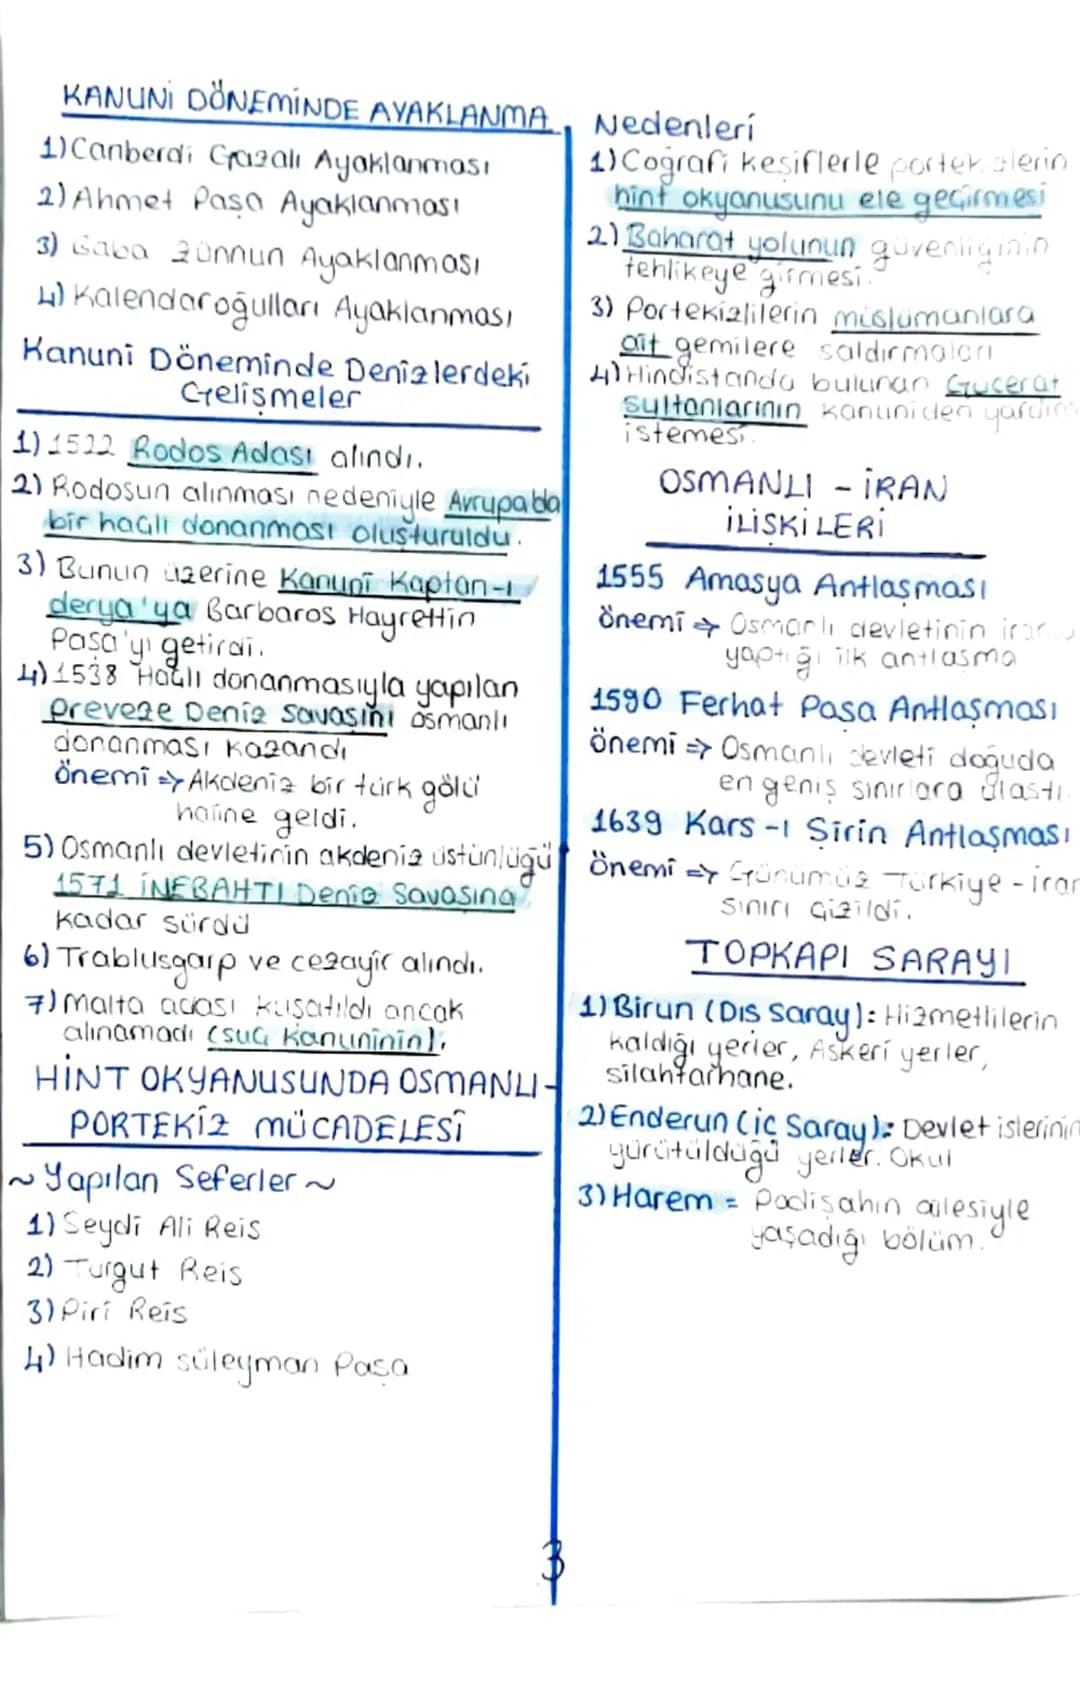 KANUNİ DÖNEMİNDE AYAKLANMA
1) Canberdi Gazali Ayaklanması
2) Ahmet Paşa Ayaklanması
3) Baba Zünnun Ayaklanması
4) Kalendaroğulları Ayaklanması
Kanuni Döneminde Denizlerdeki
Gelişmeler
1) 1522 Rodos Adası alındı.
2) Rodosun alınması nedeniyle Avrupa'da
bir haçlı donanması oluşturuldu.
3) Bunun üzerine Kanuni Kaptan-ı
derya'ya Barbaros Hayrettin
Paşa'yı getirdi.
4) 1538 Haçlı donanmasıyla yapılan
Preveze Deniz Savaşını osmanlı
donanması kazandı
önemi => Akdeniz bir türk gölü
haline geldi.
5) Osmanlı devletinin akdeniz üstünlüğü
1571 İNEBAHTI Deniz Savaşına
kadar sürdü
6) Trablusgarp ve cezayir alındı.
7) Malta adası kuşatıldı ancak
alınamadı (suç Kanuninin).
HİNT OKYANUSUNDA OSMANLI-
PORTEKİZ MÜCADELESİ
~ Yapılan Seferler ~
1) Seydi Ali Reis
2) Turgut Reis
3) Piri Reis
4) Hadim süleyman Paşa
Nedenleri
1) Coğrafi keşiflerle
hint okyanusunu ele geçirmesi
2) Baharat yolunun güvenliginin
tehlikeye girmesi.
3) Portekizlilerin müslümanlara
ait gemilere saldırmaları
4) Hindistanda bulunan Gucerat
sultanlarının kanuniden yardım
istemesi.
OSMANLI - İRAN
İLİŞKİLERİ
1555 Amasya Antlaşması
önemi => Osmanlı devletinin
yaptığı ilk antlaşma
1590 Ferhat Paşa Antlaşması
önemi => Osmanlı devleti doğuda
en geniş sınırlara ulaştı.
1639 Kars-ı Şirin Antlaşması
önemi => Günümüz Türkiye - iran
sınırı çizildi.
TOPKAPI SARAYI
1) Birun (Dış Saray): Hizmetlilerin
kaldığı yerler, Askeri yerler,
silahtarhane.
2) Enderun (iç Saray): Devlet işlerinin
yürütüldüğü yerler. Okul
3) Harem = Padişahın ailesiyle
yaşadığı bölüm.
3